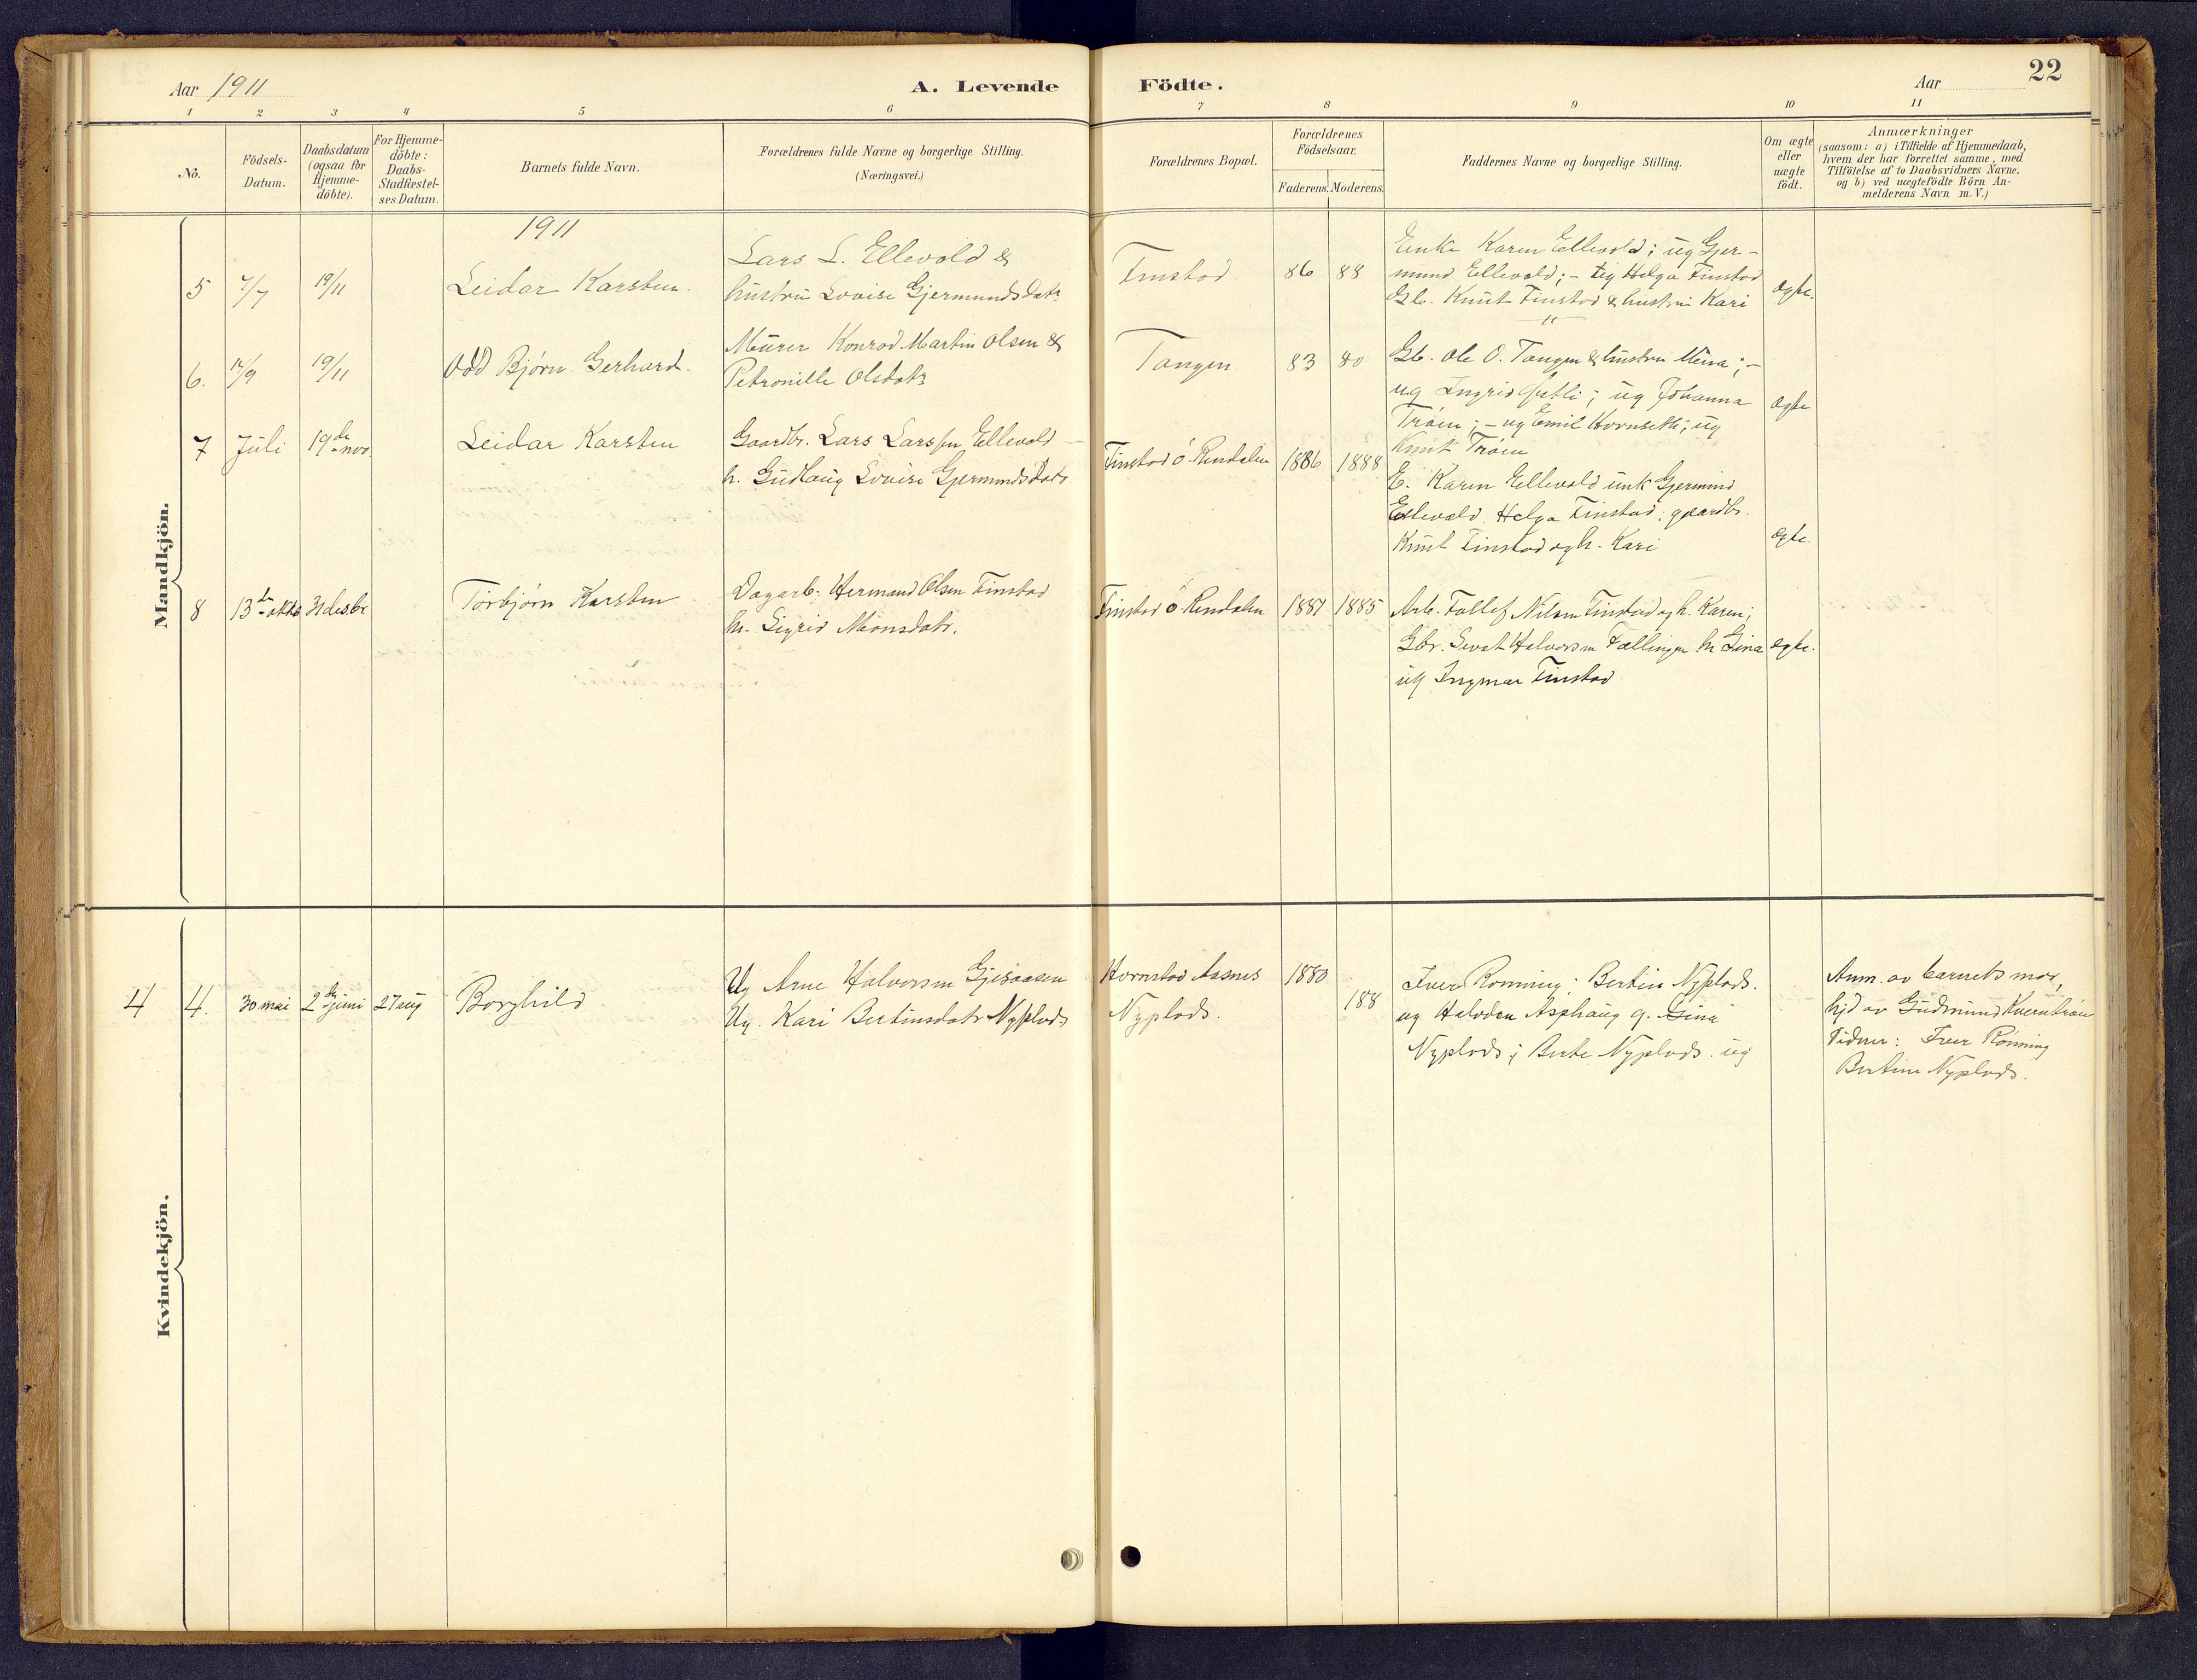 Aar 1911
A. Levende
Födte.
Aar
22
1 2 3 4 5 6 7 8 9 10 11
No.
Födsels-
Datum.
Daabsdatum
(ogsaa för
Hjemme-
döbte).
For Hjemme-
döbte:
Daabs-
Stadfestel-
ses Datum.
Barnets fulde Navn.
Forældrenes fulde Navne og borgerlige Stilling.
(Næringsvei.)
Forældrenes Bopæl.
Forældrenes
Födselsaar.
Faderens. Moderens.
Faddernes Navne og borgerlige Stilling.
Om ægte
eller
uægte
födt.
Anmærkninger
(saasom: a) i Tilfælde af Hjemmedaab,
hvem der har forrettet samme, med
Tilföielse af to Daabsvidners Navne,
og b) ved uægtefödte Börn An-
melderens Navn m.V.)
Mandkjön.
1911
5 4/7 19/11
Leidar Karsten
Lars L. Ellevold &
hustru Lovise Gjermundsdatr
Finstad
86 88
Enke Karen Ellevold; ug Gjer-
mund Ellevold; - Helga Finstad
Gb. Knut Finstad & hustru Kari
ægte.
6. 12/9 19/11
Odd Bjørn Gerhard.
Murer Konrad Martin Olsen &
Petronille Olsdatr
Tangen
83 40
Gb. Ole O. Tangen & hustru Mina; -
ug Ingrid ; ug Johanna
Trøen; - ug Emil Hornseth; ug
Knut Trøen
ægte
7 Juli 19de nov.
Leidar Karsten
Gaardbr. Lars Larssen Ellevold
h. Gudlaug Lovise Gjermundsdatr
Finstad Ö. Rendalen
1886 1888
E. Karen Ellevold unk Gjermund
Ellevold Helga Finstad; gaardbr.
Knut Finstad og h. Kari
ægte.
8 13de oktb 31 desbr
Torbjørn Karsten
Dagarb. Hermand Olsen Finstad
h. Sigrid Monsdatr.
Finstad Ö Rendalen
1887 1885
Arb. Tollef Nilsen Finstad og h. Karen;
Gbr. Sevat Halvorsen Fællingen h Gina
ug Ingmar Finstad
ægte.
Kvindekjön.
4 4. 30 mai 2den juni 27 aug
Borghild
Ug Arne Halvorsen Gjesaasen
Ug. Kari Bertinsdatr Nyplads
Hornstad Aasnes
Nyplads.
1880
188
Iver Rønning; Bertin Nyplads.
ug Halvdan Asphaug g. Gina
Nyplads; Berte Nyplads. ug
Anm. av barnets mor,
hjd av Gudmund Kverntrøen
Vidner: Iver Rønning
Bertine Nyplads.